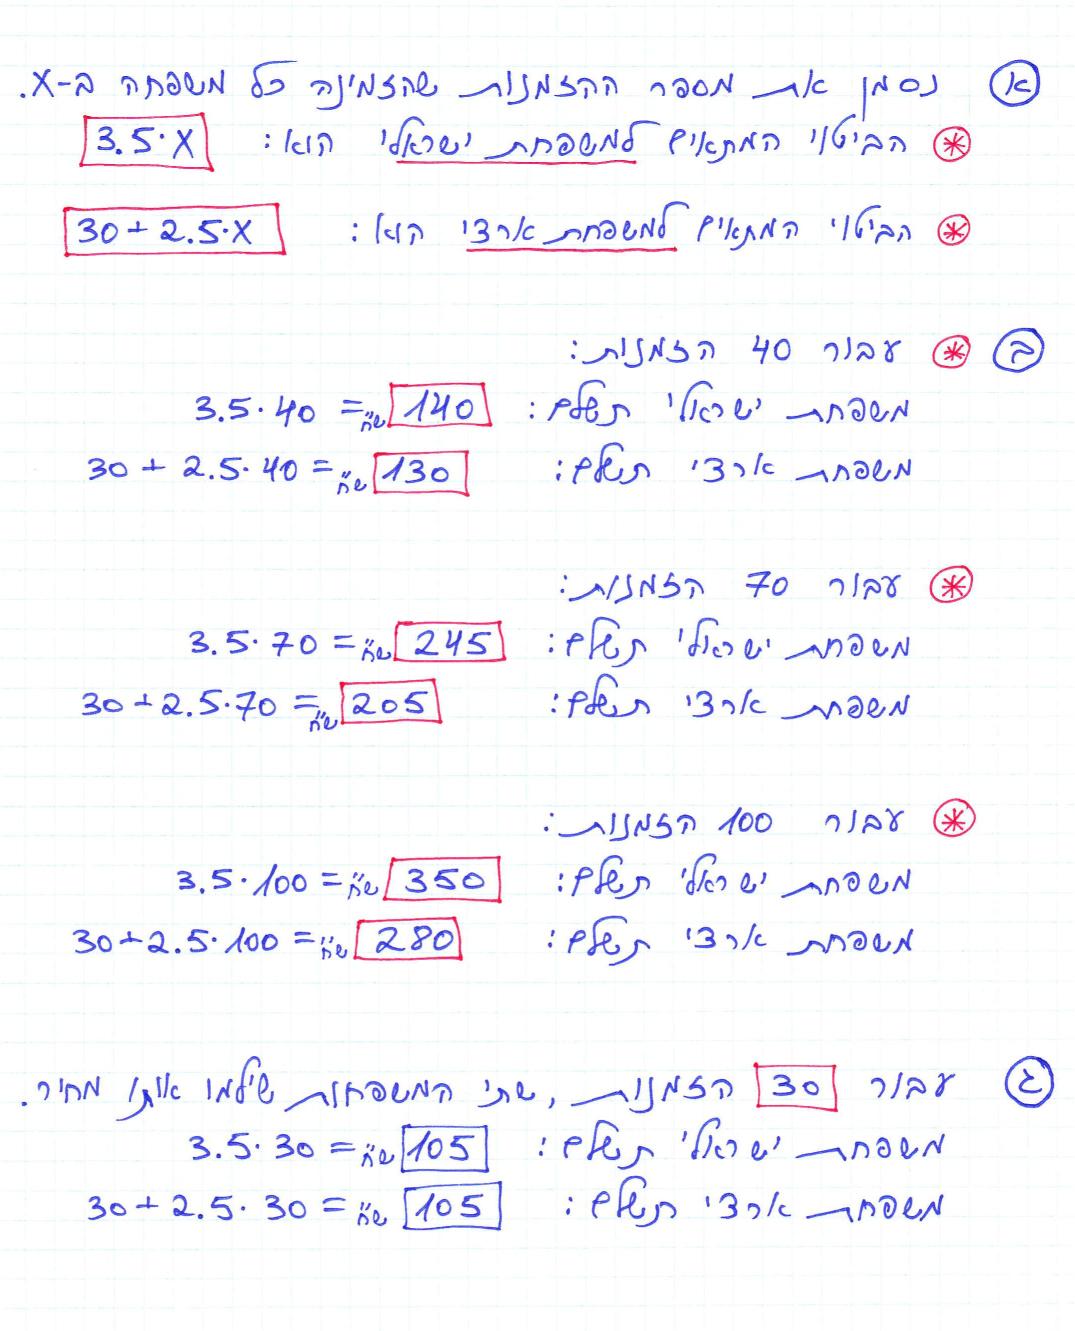 א נסמן את מספר ההזמנות שהזמינה כל משפחה ב-X.
* הביטוי המתאים למשפחת ישראלי הוא: 3.5·X
* הביטוי המתאים למשפחת ארצי הוא: 30+2.5·X
ב * עבור 40 הזמנות:
משפחת ישראלי תשלם: 3.5·40 = 140 ש"ח
משפחת ארצי תשלם: 30+2.5·40 = 130 ש"ח
* עבור 70 הזמנות:
משפחת ישראלי תשלם: 3.5·70 = 245 ש"ח
משפחת ארצי תשלם: 30+2.5·70 = 205 ש"ח
* עבור 100 הזמנות:
משפחת ישראלי תשלם: 3.5·100 = 350 ש"ח
משפחת ארצי תשלם: 30+2.5·100 = 280 ש"ח
ג עבור 30 הזמנות, שתי המשפחות שילמו אותו מחיר.
משפחת ישראלי תשלם: 3.5·30 = 105 ש"ח
משפחת ארצי תשלם: 30+2.5·30 = 105 ש"ח